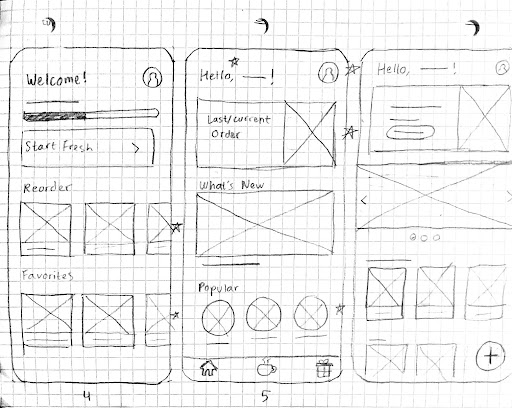 Welcome!
Start Fresh
Reorder
Favorites
4
Hello, __!
Last/current
Order
What's New
Popular
5
Hello, __!